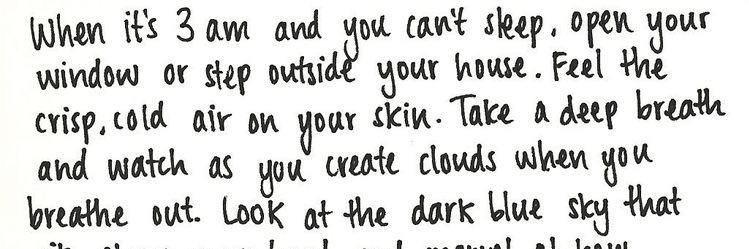 When it's 3 am and you can't sleep, open your
window or step outside your house. Feel the
crisp, cold air on your skin. Take a deep breath
and watch as you create clouds when you
breathe out. Look at the dark blue sky that